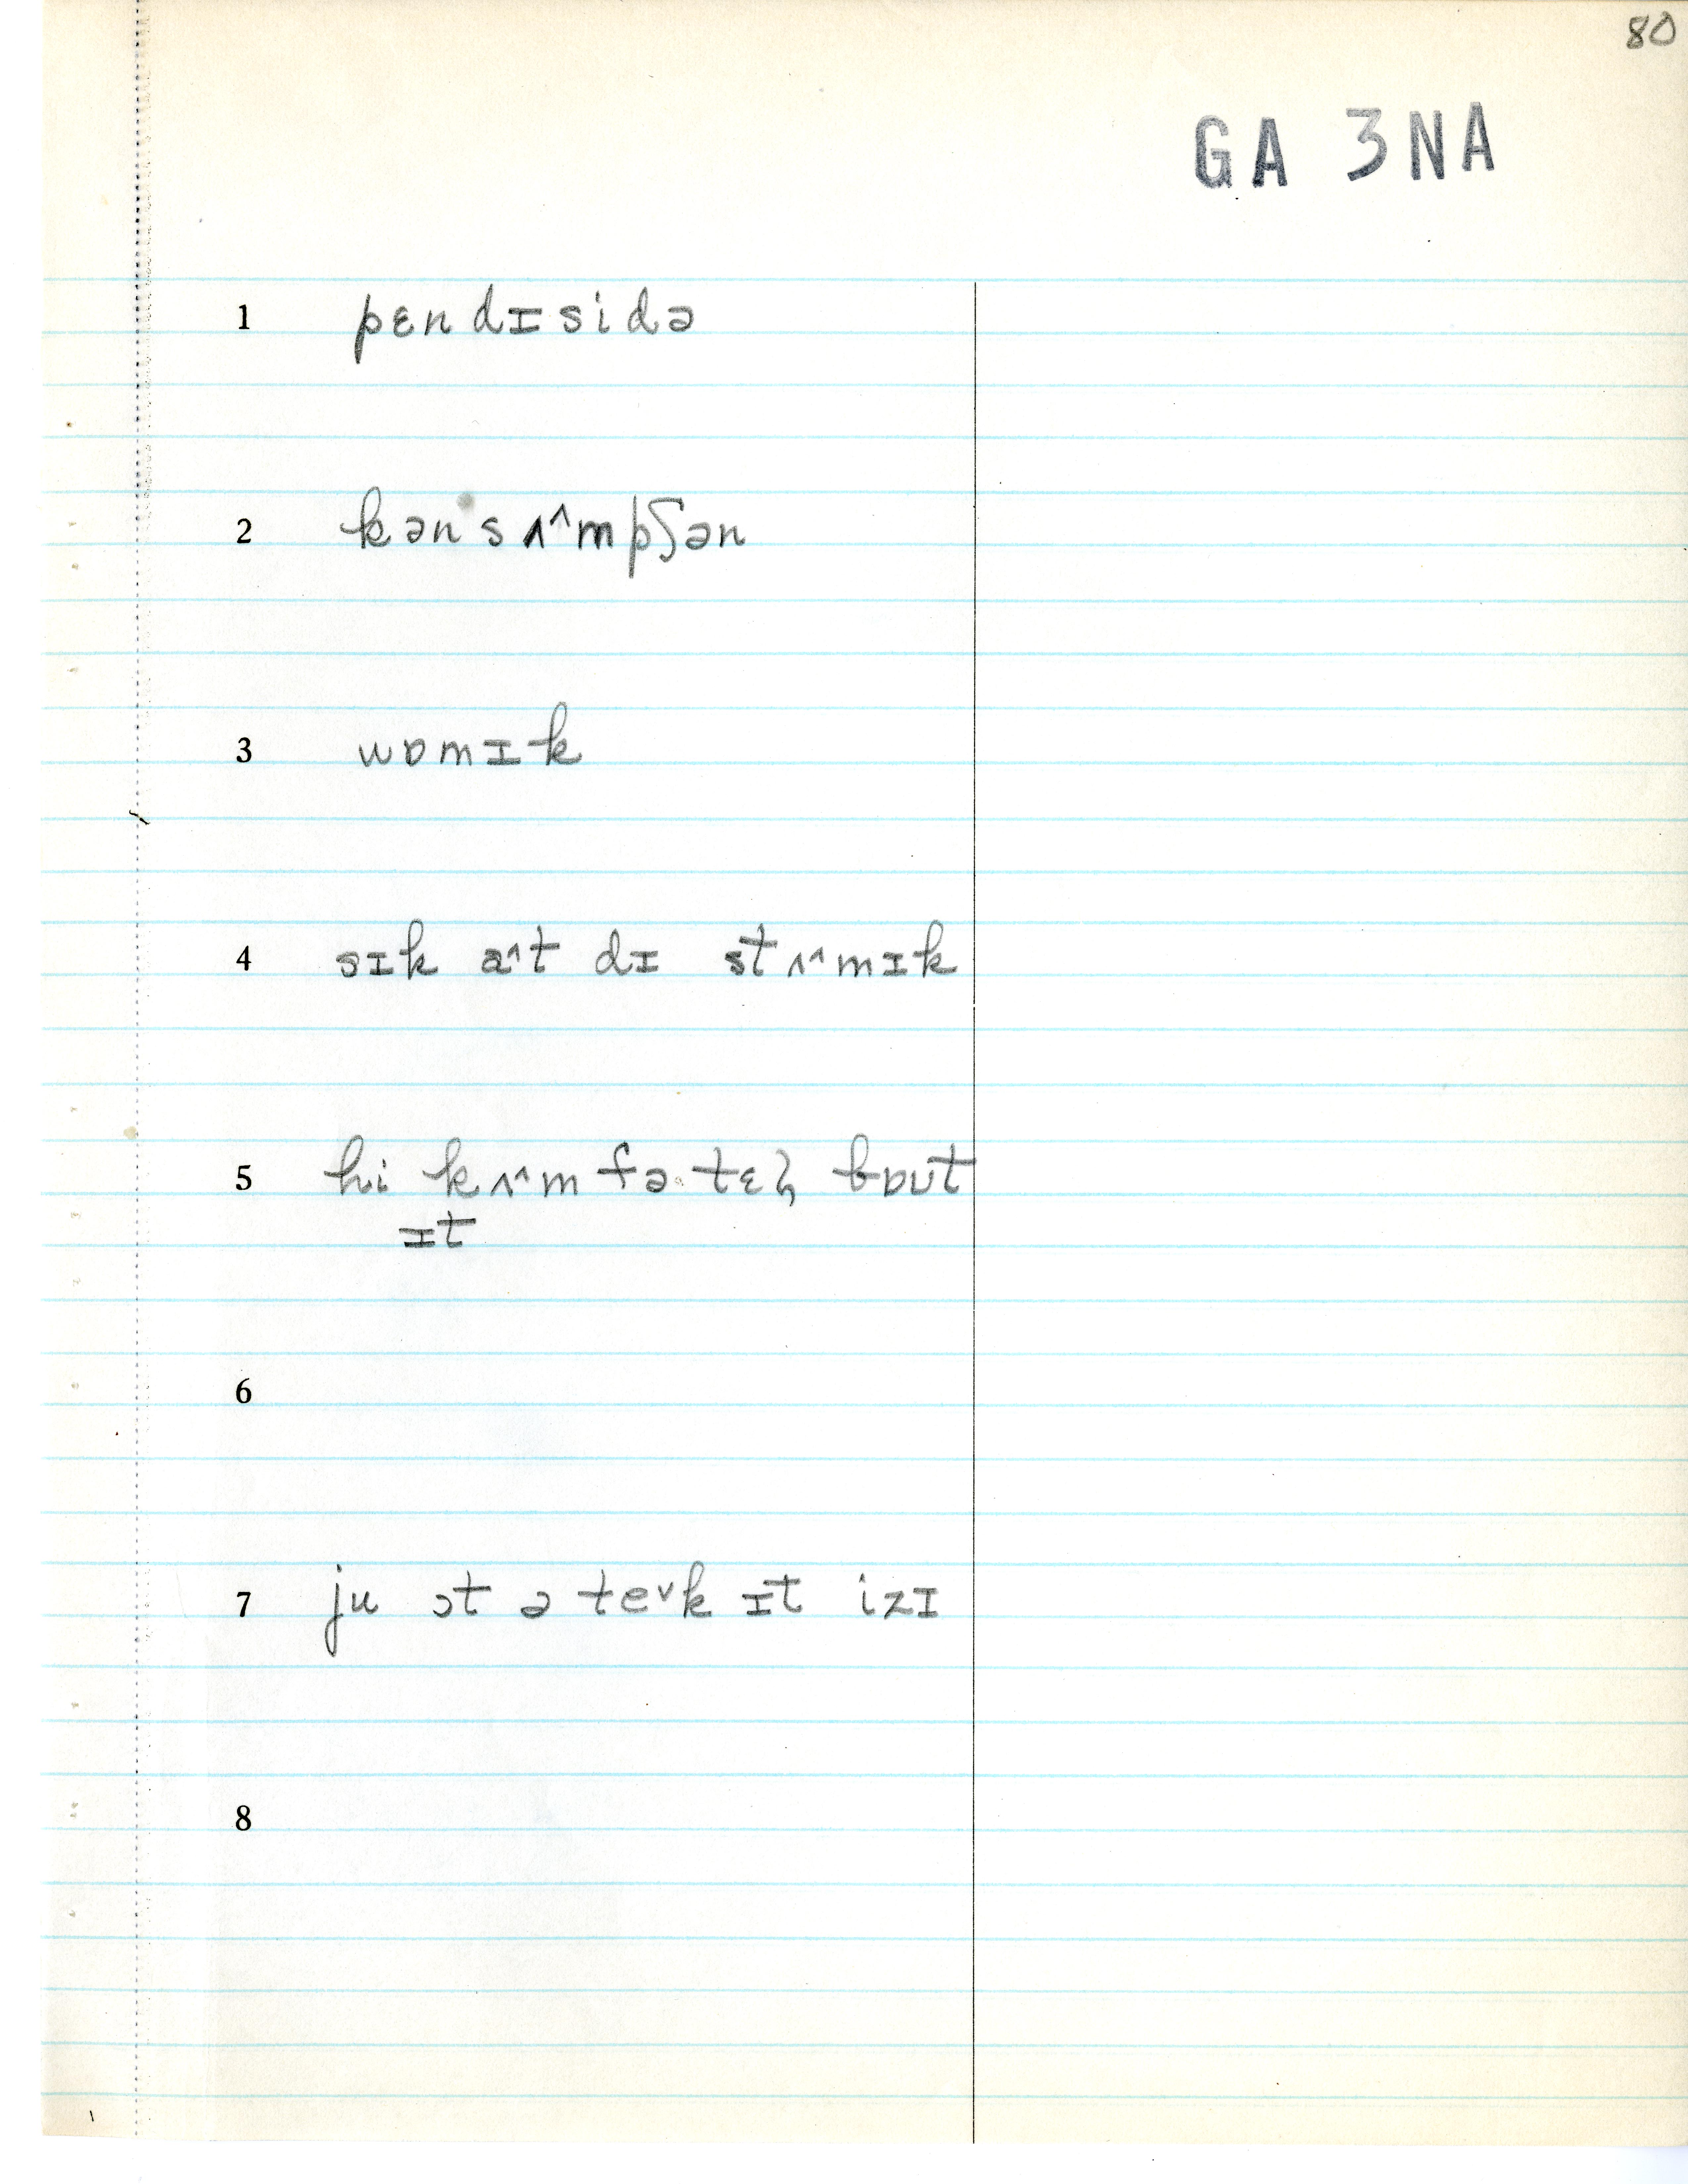 80
GA 3NA
1 pɛndɪsidə
2 kən's ʌ^mpʃən
3 wɒmɪk
4 sɪk a^t dɪ stʌ^mɪk
5 hi kʌ^m fə tɛl̢ bɒʊt
ɪt
6
7 ju ɔt ə teˇk ɪt izɪ
8